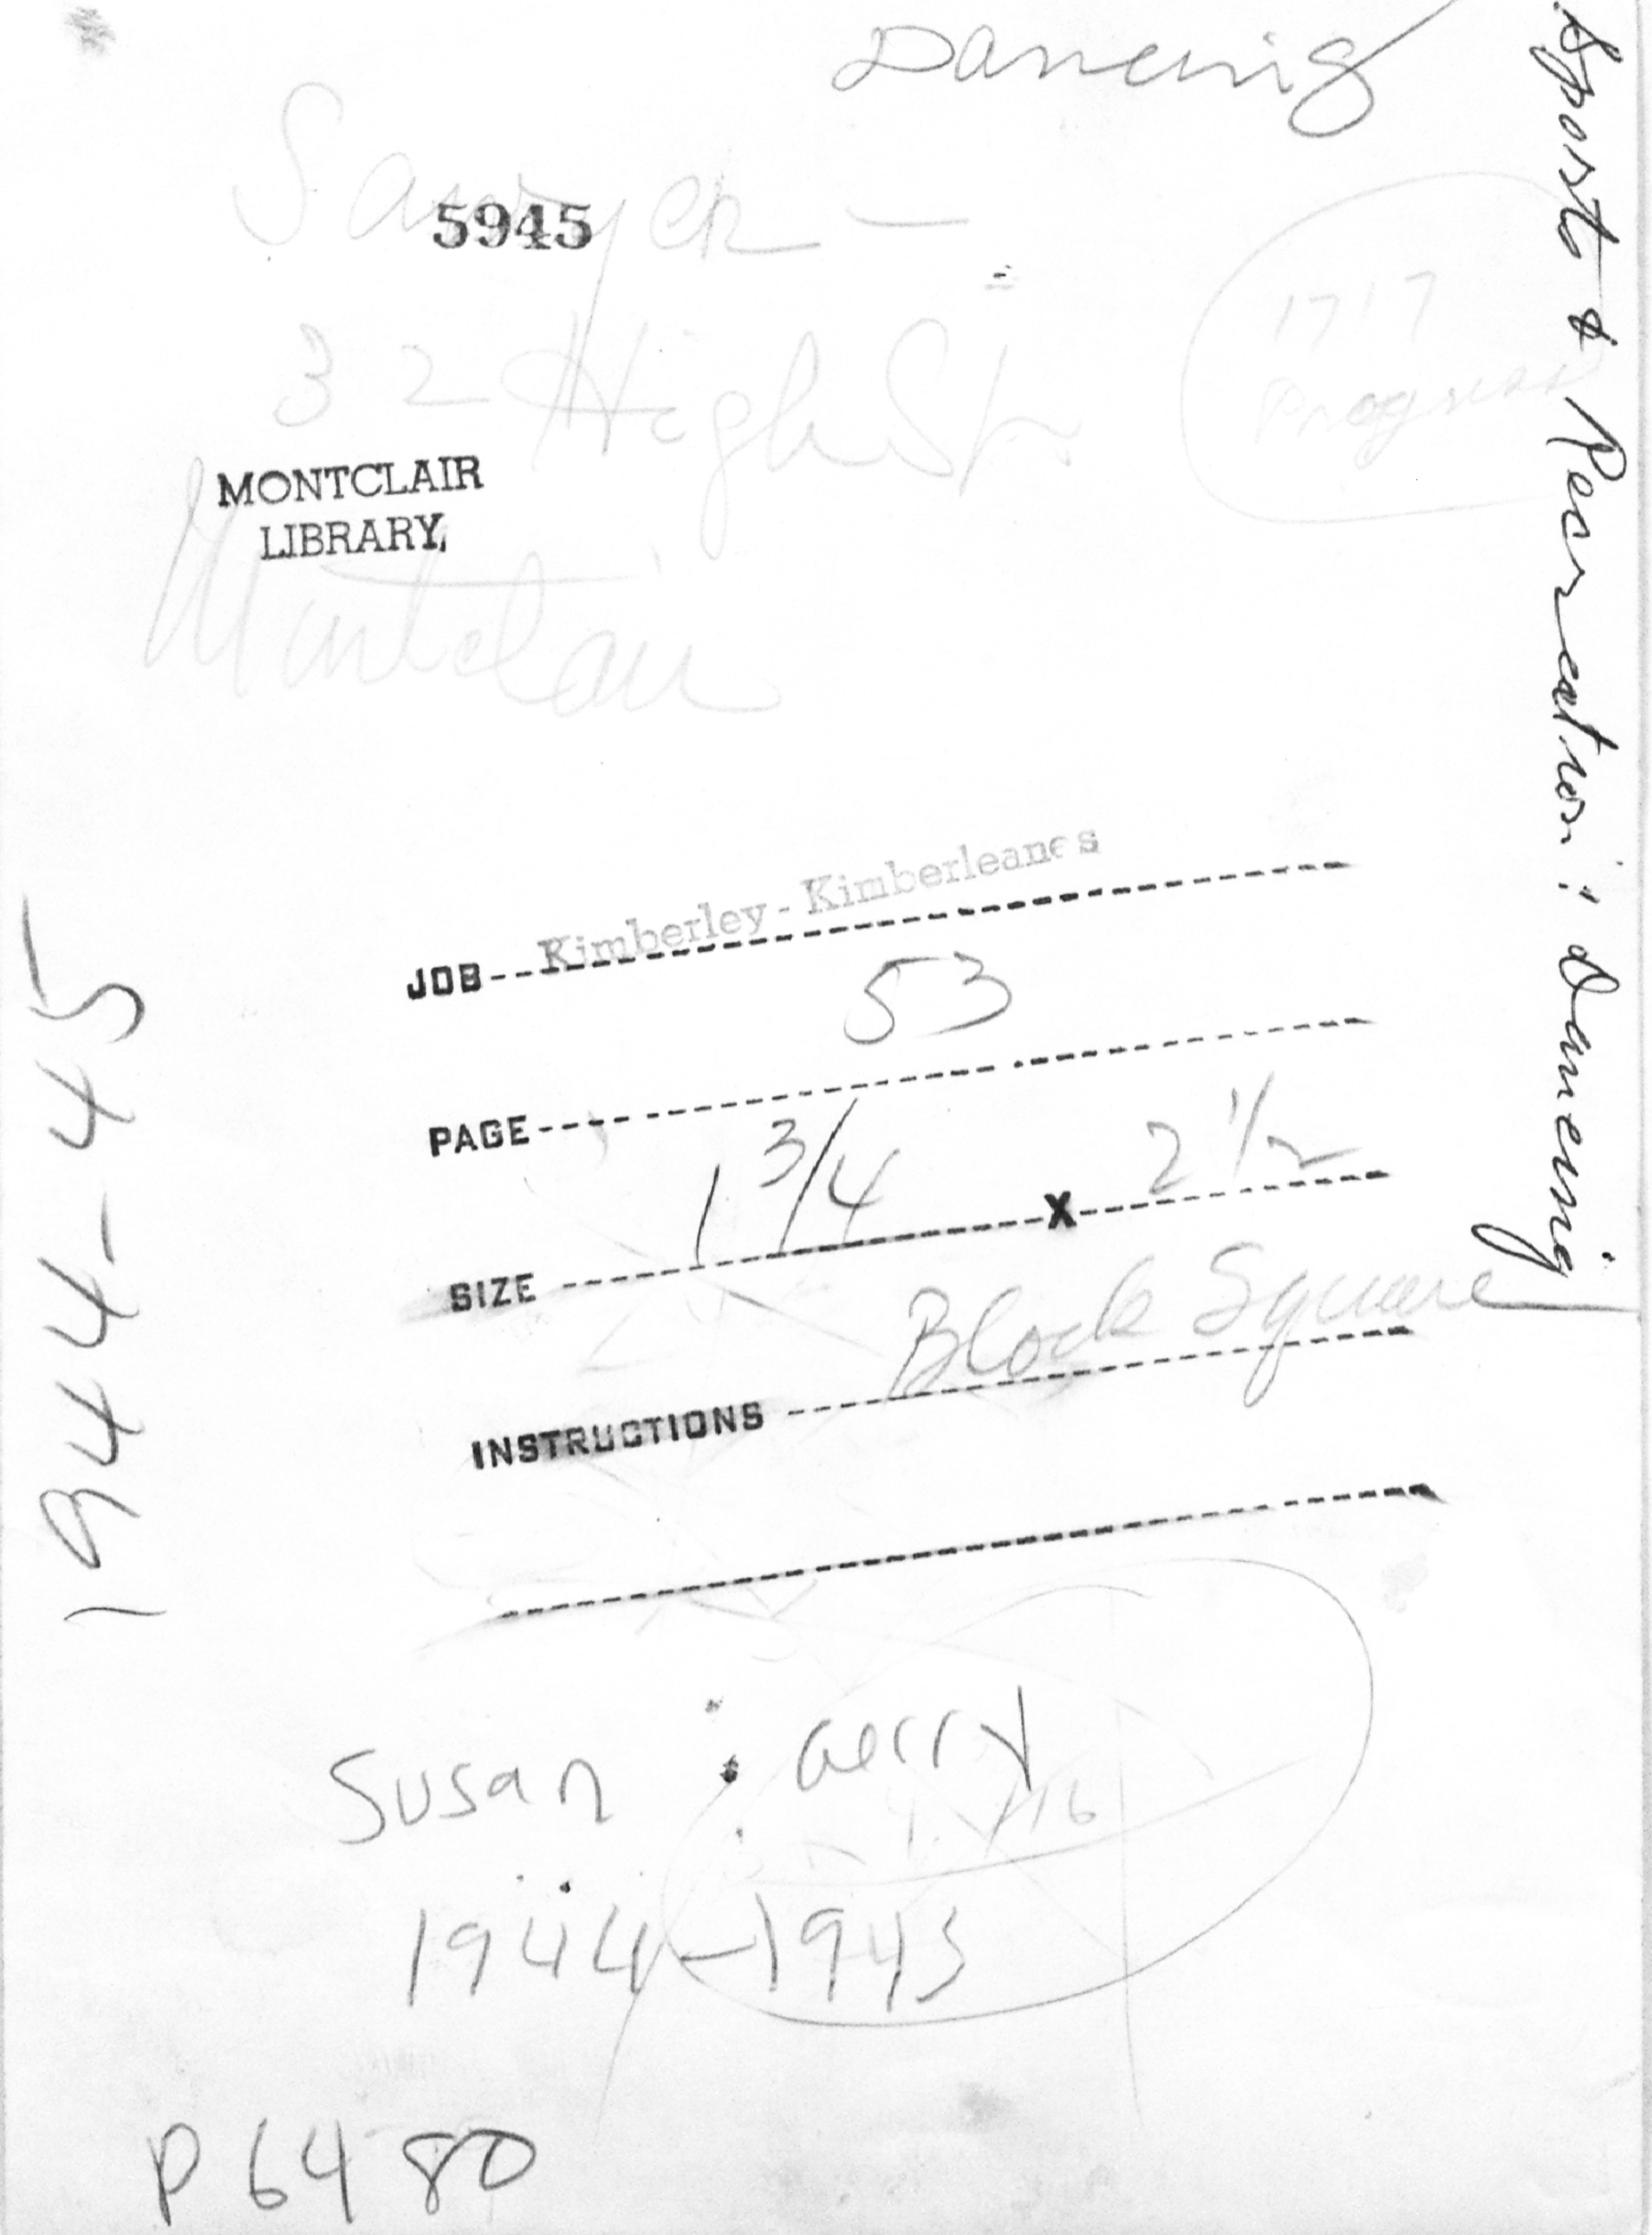 Dancing
Sawyer -
5945
32 High St.
1717
MONTCLAIR
LIBRARY,
Montclair
Sports & Recreation: Dancing
JOB Kimberley - Kimberleanes
PAGE 53
SIZE 1 3/4 X 2 1/2
INSTRUCTIONS Block Square
1944-45
Susan Gerry
1944-1945
P6480